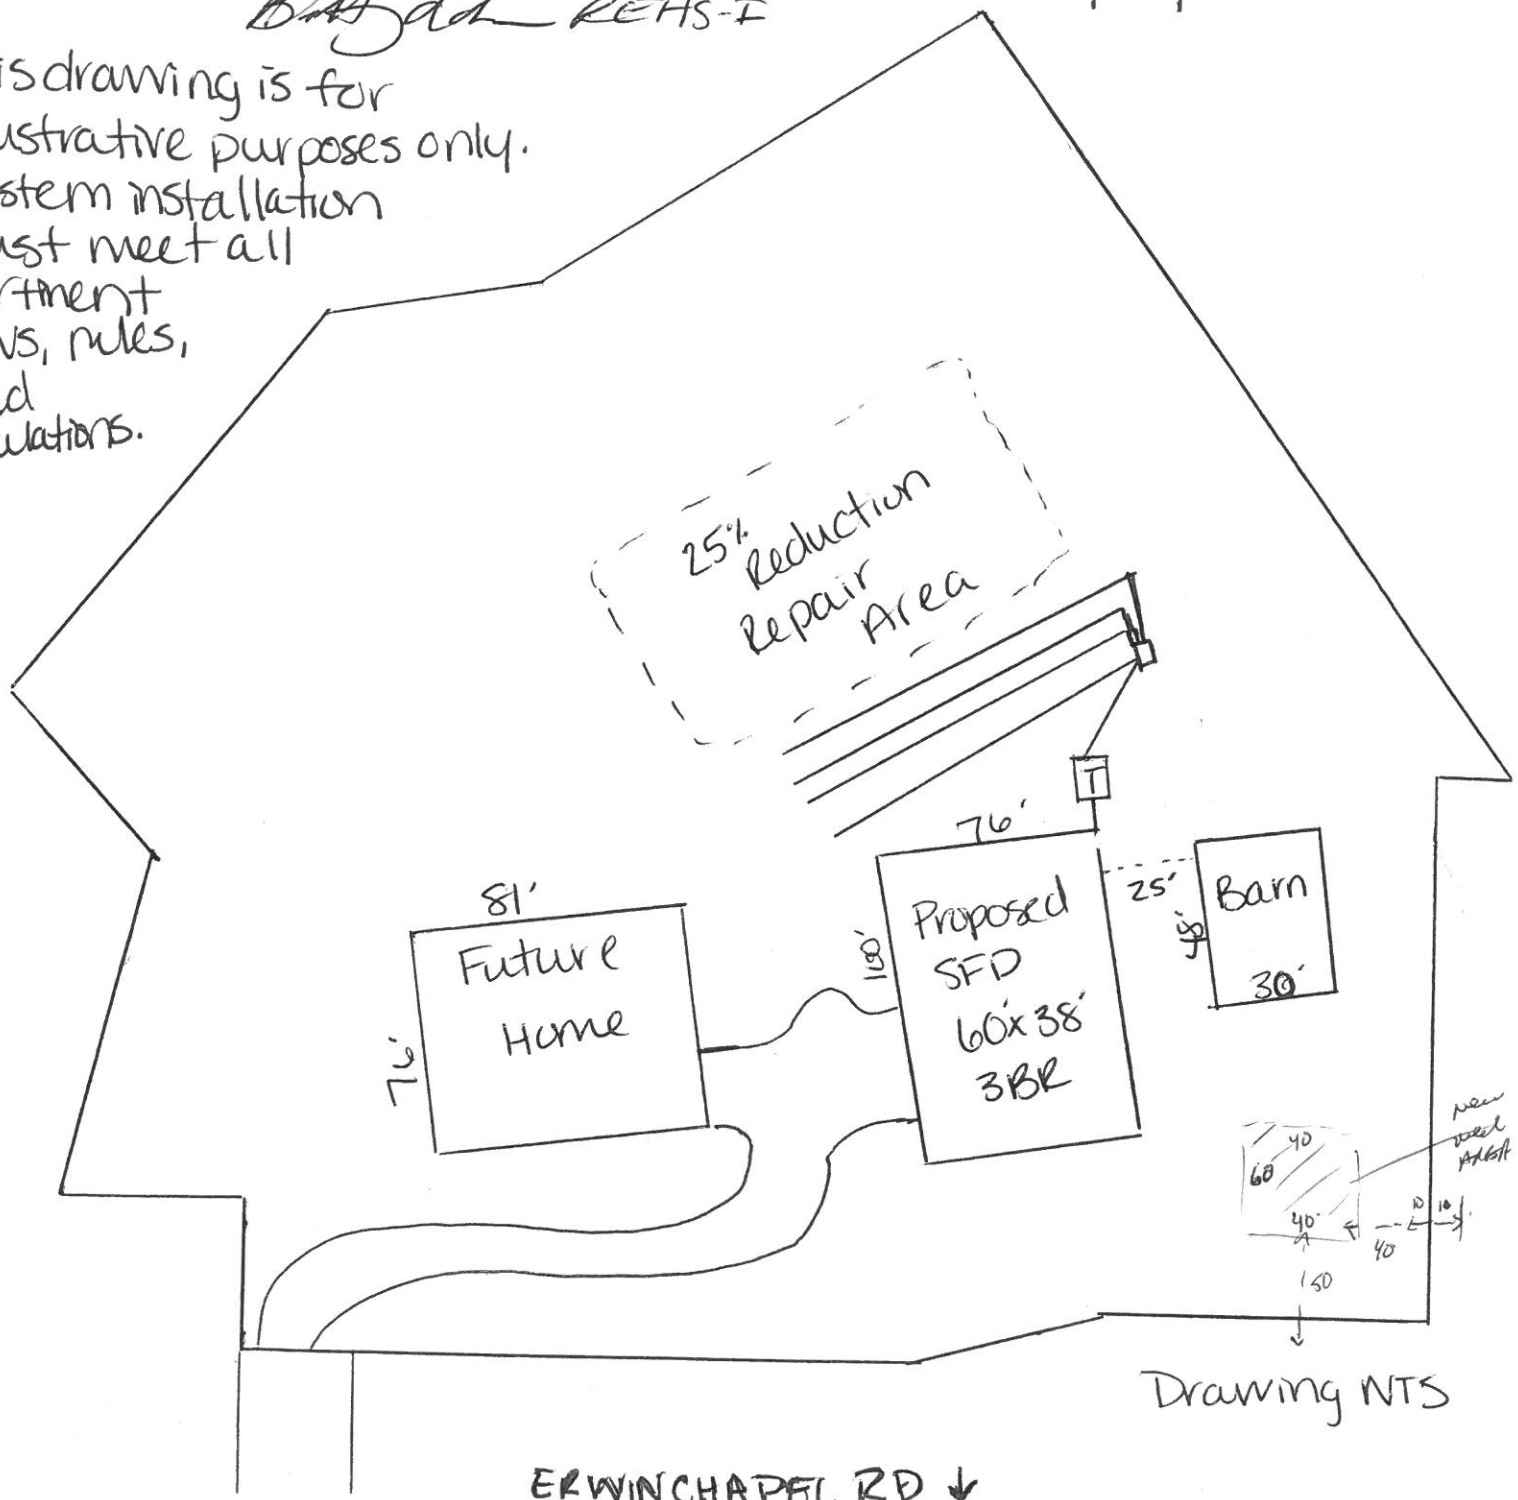 REHS-I
is drawing is for
ustrative purposes only.
stem installation
ust meet all
rtment
ws, rules,
d
ulations.
25%
Reduction
Repair
Area
T
76'
81'
Future
Home
76'
100'
Proposed
SFD
60'x38'
3BR
25'
Barn
48'
30'
New
well
AREA
40
60
40'
10 10
40
150
Drawing NTS
ERWIN CHAPEL RD ↓